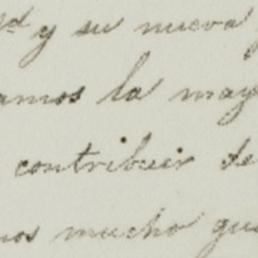 y su nueva
amos la may
contribuir de
nos mucho gus